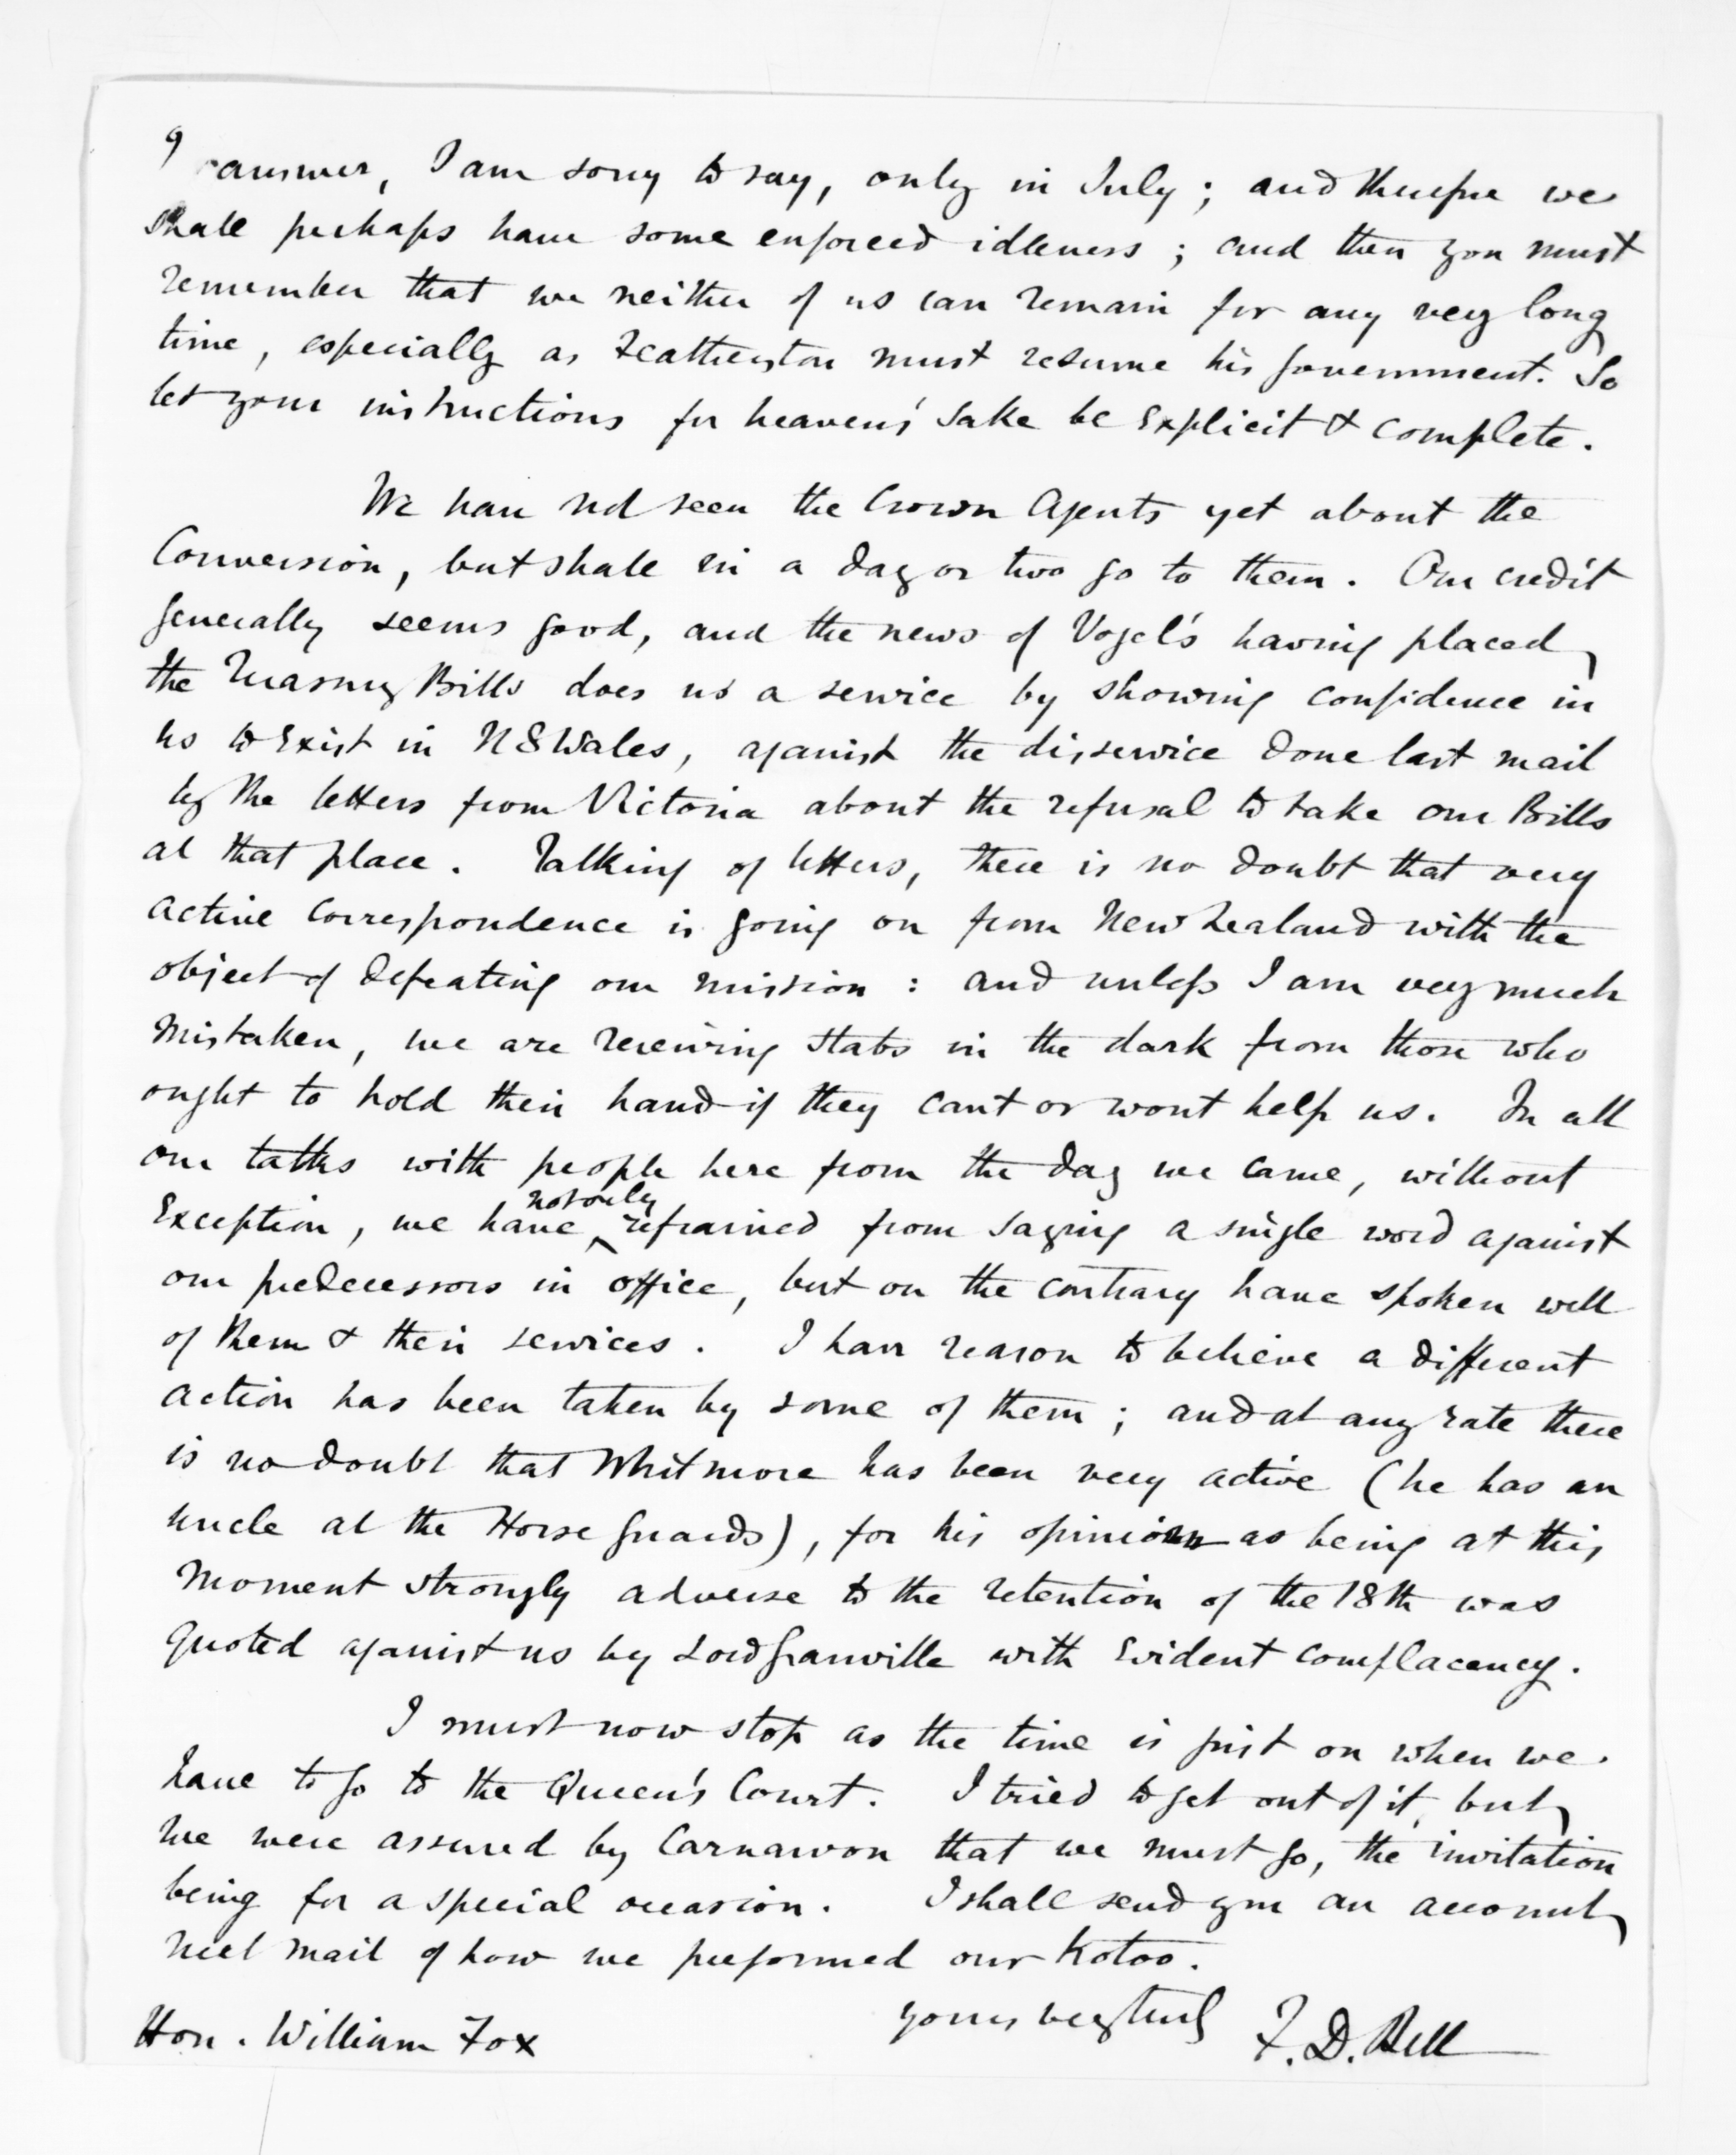 9 answer, I am sorry to say, only in July ; and therefore we
shall perhaps have some enforced idleness ; and then you must
remember that we neither of us can remain for any very long
time, especially as Featherston must resume his government. So
let your instructions for heavens' sake be explicit & complete.
We have not seen the Crown Agents yet about the
Conversion, but shall in a day or two go to them. Our credit
generally seems good, and the news of Vogel's having placed
the Treasury Bills does us a service by showing confidence in
us to exist in NSWales, against the disservice done last mail
by the letters from Victoria about the refusal to take our Bills
at that place. Talking of letters, there is no doubt that very
active correspondence is going on from New Zealand with the
object of defeating our mission : and unless I am very much
mistaken, we are receiving stabs in the dark from those who
ought to hold their hand if they cant or wont help us. In all
our talks with people here from the day we came, without
exception, we have not only refrained from saying a single word against
our predecessors in office, but on the contrary have spoken well
of them & their services. I have reason to believe a different
action has been taken by some of them ; and at any rate there
is no doubt that Whitmore has been very active (he has an
uncle at the Horse Guards), for his opinion as being at this
moment strongly adverse to the retention of the 18th was
quoted against us by Lord Granville with evident complacency.
I must now stop as the time is just on when we
have to go to the Queen's Court. I tried to get out of it, but
we were assured by Carnarvon that we must go, the invitation
being for a special occasion. I shall send you an account
next mail of how we performed our Kotoo.
yours very truly F. D. Bell
Hon. William Fox